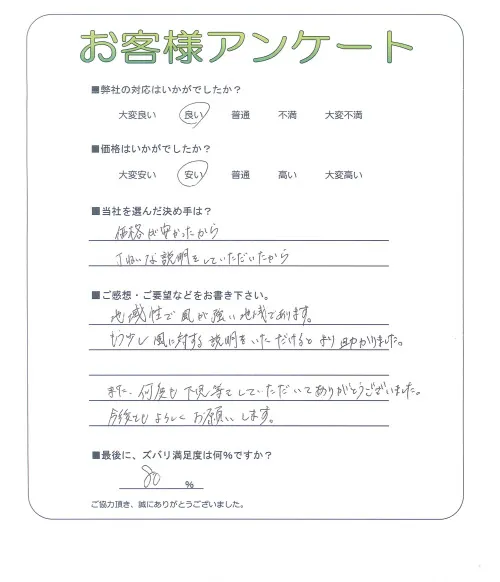 お客様アンケート
■弊社の対応はいかがでしたか？
大変良い 良い 普通 不満 大変不満
■価格はいかがでしたか？
大変安い 安い 普通 高い 大変高い
■当社を選んだ決め手は？
価格が安かったから
丁ねいな説明をしていただいたから
■ご感想・ご要望などをお書き下さい。
地域性で風が強い地域であります。
もう少し風に対する説明をいただけるとより助かりました。
また、何度も下見等をしていただいてありがとうございました。
今後ともよろしくお願いします。
■最後に、ズバリ満足度は何％ですか？
80 ％
ご協力頂き、誠にありがとうございました。